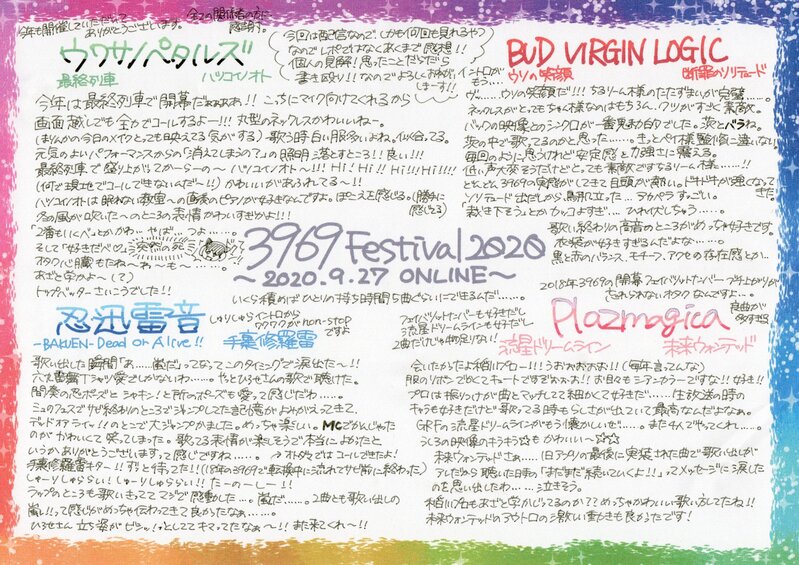 今年も開催していただいて
ありがとうございます。
全ての関係者の方に
感謝っ。
今回は配信なので、しかも何回も見れるやつ
なのでレポではなくあくまで感想!!
個人の見解!思ったことだらだら
書き殴り!!なのでよろしくお願い
しまーす!!
ウワサノペタルズ
最終列車
ハツコイノオト
今年は最終列車で開幕だぁぁぁあ!!こっちにマイク向けてくれるから
画面越しでも全力でコールするよー!!!丸型のネックレスかわいいねー。
元気のよいパフォーマンスからの「消えてしまうの?」の照明落とすところ!!良い!!!
最終列車で盛り上がってからーらのー ハツコイノオト〜!!! Hi!Hi!! Hi!!!Hi!!!!
(何で現地でコールできないんだー!!)かわいいがあふれてる〜!!
ハツコイノオトは眠れない教室への
の風が吹いたへのところの表情かわいすぎかよ!!!
「2番も
そして「好きだべヶ」突然の
オタク心臓もたねーわ〜も〜
あざと京かよ〜(て)
トップバッターさいこうでした!!
BUD VIRGIN LOGIC
イントロが
もう…
ウソの笑顔
断罪のソリテュード
ヴ……ウソの笑顔だ!!!ちるりーん様のたたずまいが完璧……
ネックレスがとってもちゃん様なのはもちろん、ワリがすごく素敵。
バックの映像とのシンクロが一番鬼魅力的でした。茨とバラね。
茨の中で歌ってるのかと思った……きっとペイ様監修に違いない
毎回のように思うけれど安定感と力強さに震える。
低い声大変そうだけどとっても素敵ですちるりーん様……!!
どんどん3969の実感がしてきて目頭が熱い。ドキドキが強くなって
きた。
ソリテュード出だしから鳥肌立った…アカペラすっごい。
裁き下そうとかカッコよすぎ…ひれふしちゃう……
歌い終わりの高音のところがめっちゃ好きです。
衣装が好きすぎるんだよな……
黒と赤のバランス、モチーフ、アクセの存在感とか…
3969 Festival 2020
〜2020.9.27 ONLINE〜
いくら積めばひとりの持ち時間5曲ぐらいにできるんだ……。
忍迅雷音
-BAKUEN-Dead or Alive!!
しゅりしゅらイントロから
ワクワクがnon-stop
ですよ
手裏修羅雷
歌い出した瞬間「あ……嵐だ」ってなってこのタイミングで涙出た〜!!
間奏の忍ポーズとシャキン!と所のポーズも愛って感じだわ……。
ミュのフェスでサビ終わりのところでジャンプしてた記憶がよみがえってきて
デッドオアライッ!!のとこで大ジャンプかました。めっちゃ楽しい。MCでかんじゃった
のがかわいくて笑ってしまった。歌ってる表情が楽しそうで本当によかったと
いうかありがとうございますって感じですね……。→オトダマではコールできたよ!
手裏修羅雷キター!!ずっと待ってた!!(18年の3969で転換中に流れてサビ前に終わった)
しゅりしゅらうい!しゅりしゅらうい!!たーのーしー!!
ラップのところも歌いきっててマジで感動した…。嵐だ……。2曲とも歌い出しの
嵐!!って感じがめっちゃ伝わってきて良かったなぁ……。
ひるせさん立ち姿がピシッ!っとしててキマってたなぁ〜!!また来てくれ〜!!
2018年3969の開幕フェイバリットナンバーブチ上がりが
忘れられないオタクなんですよ…。
良曲が
多すぎる
フェイバリットナンバーも好きだし
流星ドリームラインも好きだし
2曲だけじゃ物足りない!!
Plazmagica
流星ドリームライン
未来ウォンテッド
会いたかったよ稲川プロー!!!うぉぉぉぉお!!(毎年言ってんな)
服のリボンでかくてキュートですぎぉぉぉ!!お目々もシアンカラーですな!!好き!!
プロは振りつけが曲とマッチしてて細かくて好きだ……生放送の時の
キャラも好きだけど歌ってる時もらしさが出ていて最高なんだよなぁ。
GRFの流星ドリームラインがもう懐かしいぜ……。また4人でやってくれ…
うしろの映像のキラキラ☆もかわいい〜☆☆
未来ウォンテッドさぁ…(旧アプリの最後に実装された曲で歌い出しが
アレだから聴いた時「まだまだ続いていくよ!!」ってメッセージに涙した
のを思い出したわ…泣きそう。
稲川プロもあざと京かじってるのか??めっちゃかわいい歌い方してたね!!
未来ウォンテッドのアウトロの激しい動きも良かったです!